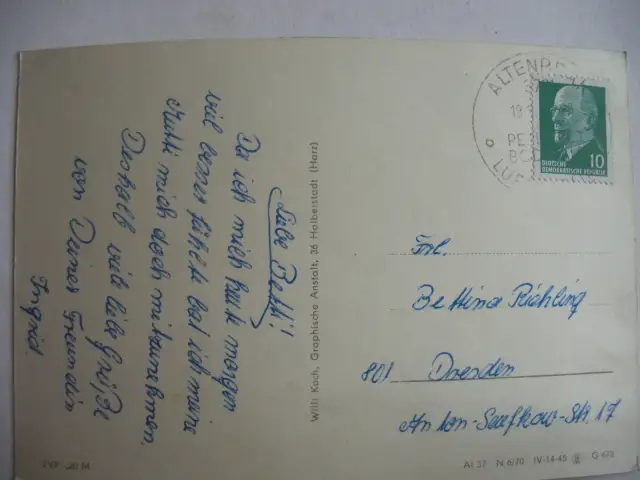 Liebe Betti!
Da ich mich heute morgen
viel besser fühlte hat ich meine
Mutti mich doch mitzunehmen.
Deshalb viele liebe Grüße
von Deiner Freundin
Ingrid.
Willi Koch, Graphische Anstalt, 36 Halberstadt (Harz)
ALTENB
19
PE
BO
LU
10
DEUTSCHE
DEMOKRATISCHE REPUBLIK
Frl.
Bettina
801 Dresden
Anton-Saefkow-Str. 17
EVP
M
AI 37 N 6/70 IV-14-45 G 678